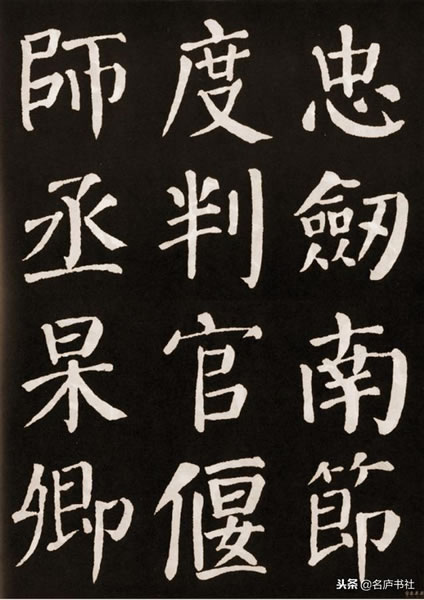 忠劒南節
度判官偃
師丞杲卿
头条@名庐书社